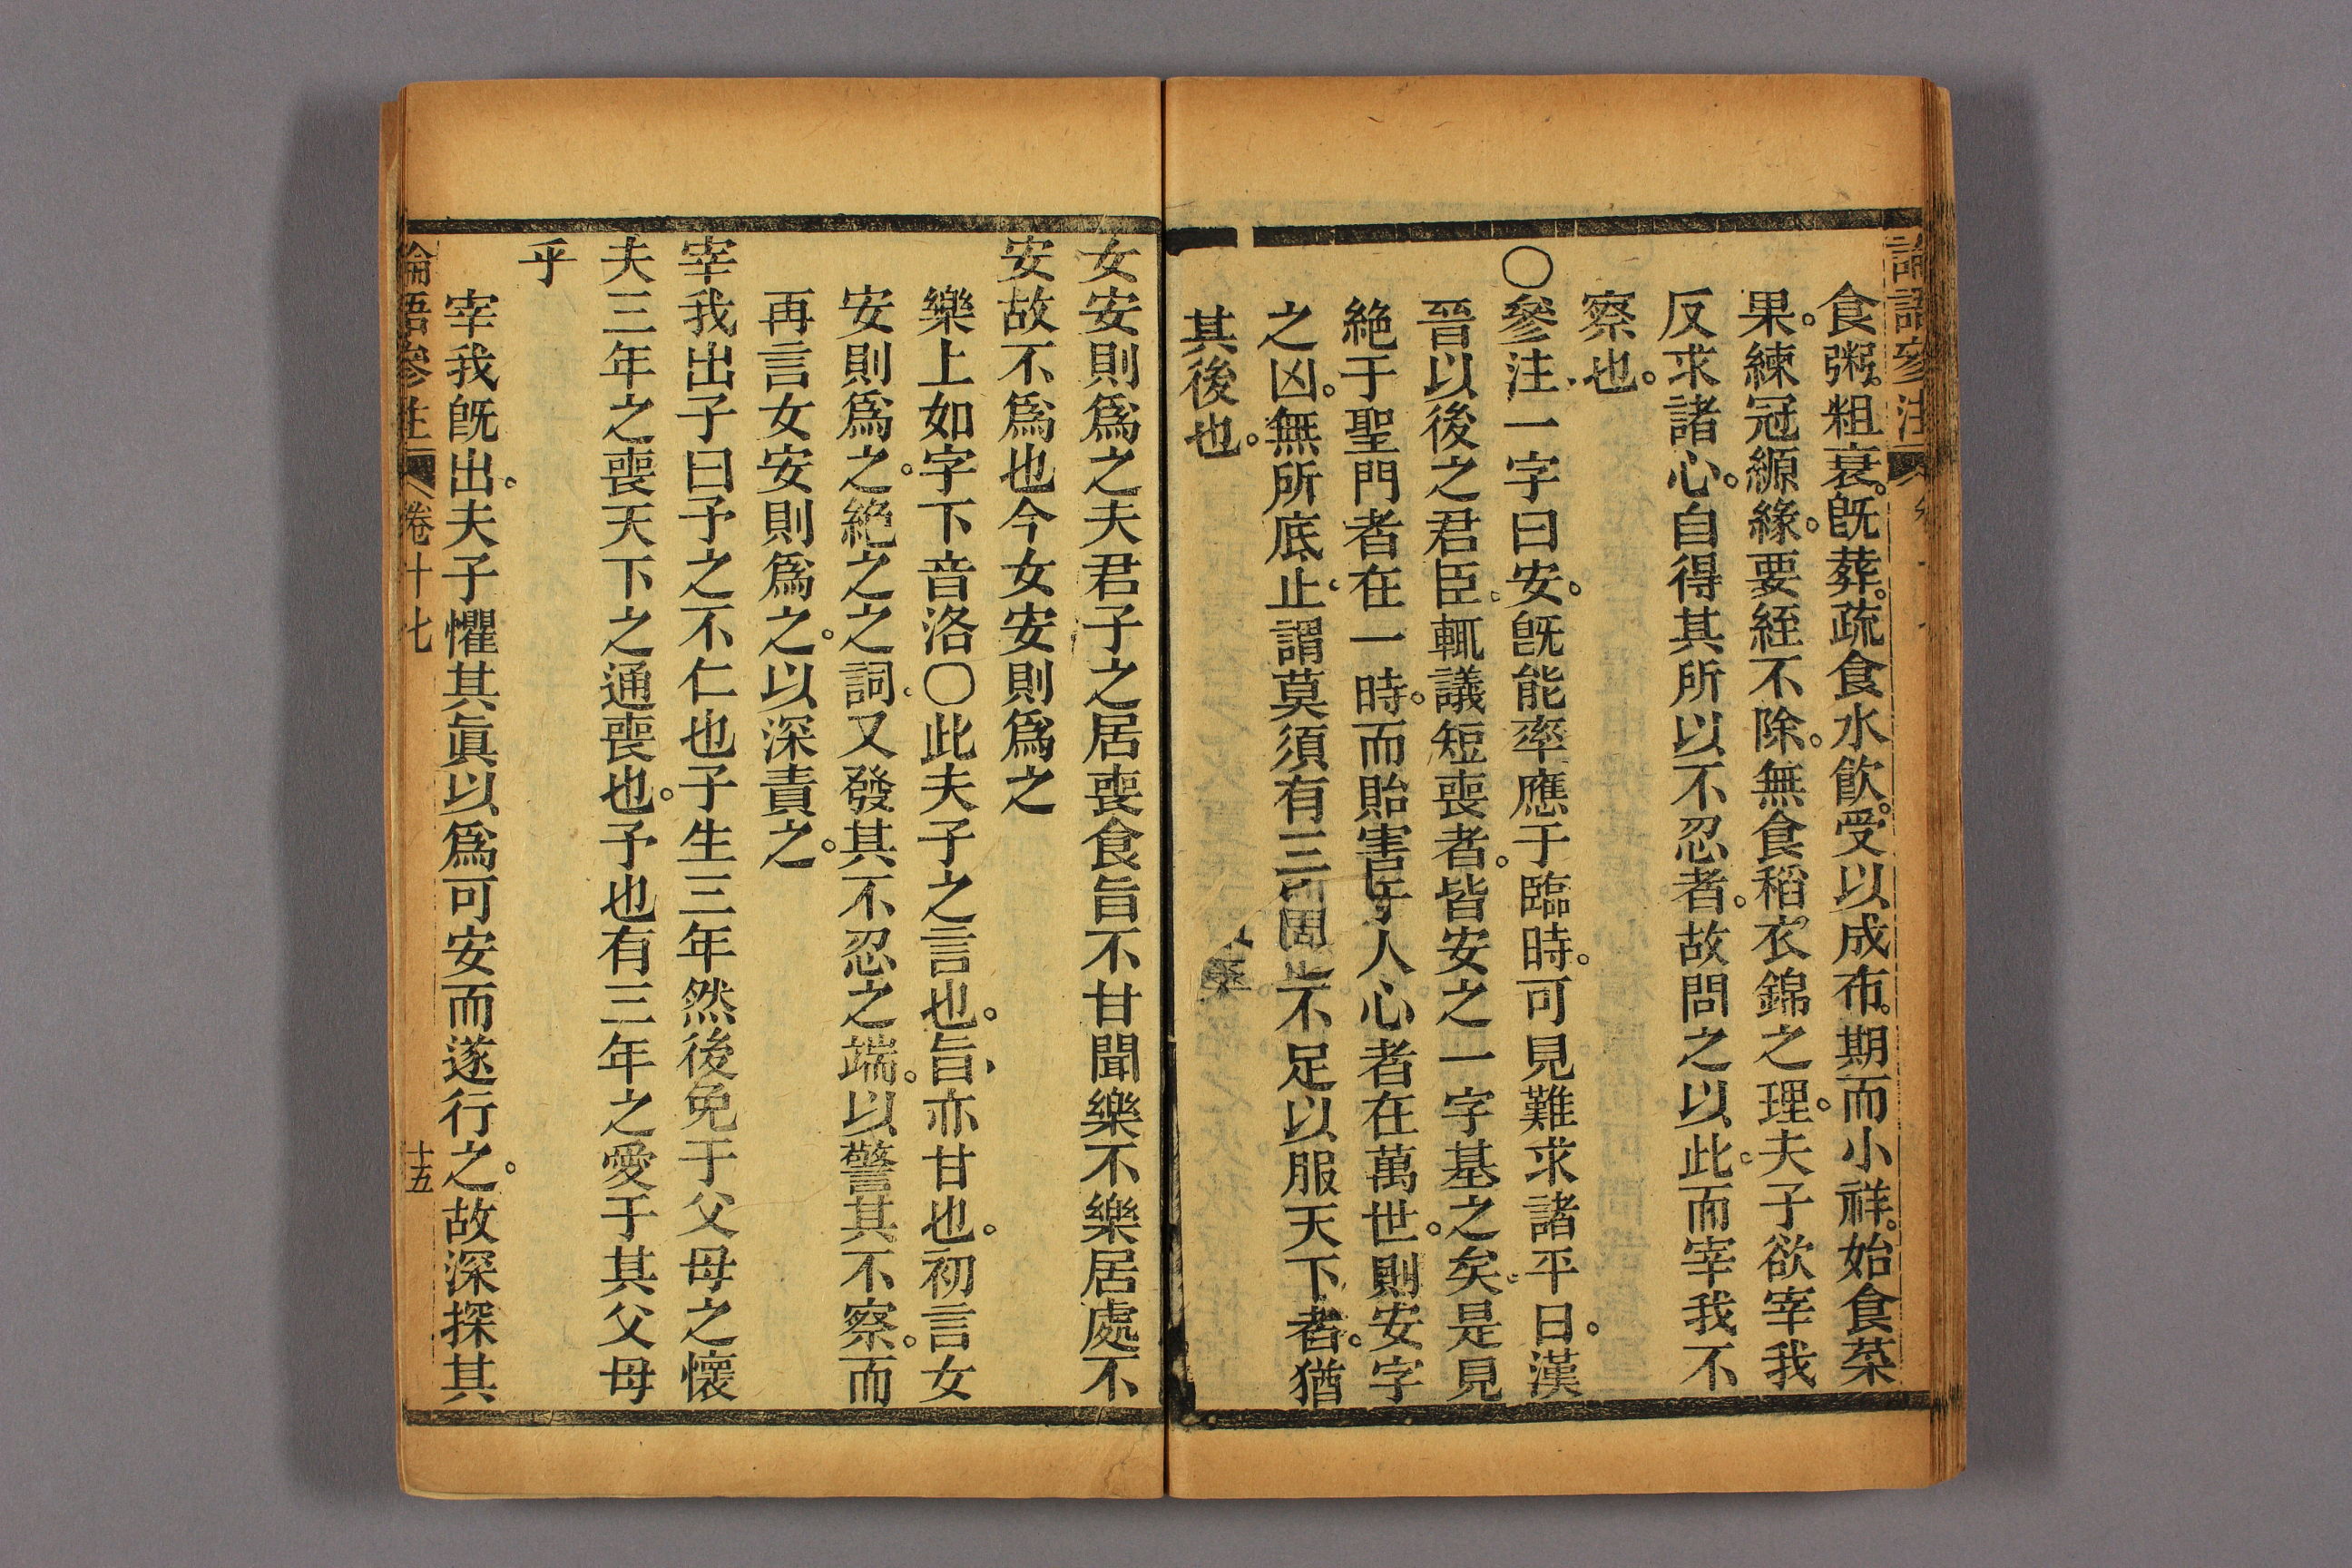 論語參注
食粥。粗衰。旣葬。疏食水飮。受以成布。期而小祥。始食菜
果。練冠縓緣。要絰不除。無食稻衣錦之理。夫子欲宰我
反求諸心。自得其所以不忍者。故問之以此。而宰我不
察也。
〇參注、一字曰安。旣能率應于臨時。可見難求諸平日。漢
晉以後之君臣。輒議短喪者。皆安之一字基之矣。是見
絶于聖門者在一時。而貽害于人心者在萬世。則安字
之凶。無所底止。謂莫須有三不足以服天下者。猶
其後也。
女安則爲之夫君子之居喪食旨不甘聞樂不樂居處不
安故不爲也今女安則爲之
樂上如字下音洛〇此夫子之言也。旨、亦甘也。初言女
安則爲之。絶之之詞。又發其不忍之端。以警其不察。而
再言女安則爲之。以深責之。
宰我出子曰予之不仁也子生三年然後免于父母之懷
夫三年之喪天下之通喪也。予也有三年之愛于其父母
乎
宰我旣出。夫子懼其眞以爲可安而遂行之。故深探其
論語參注 卷十七 十五